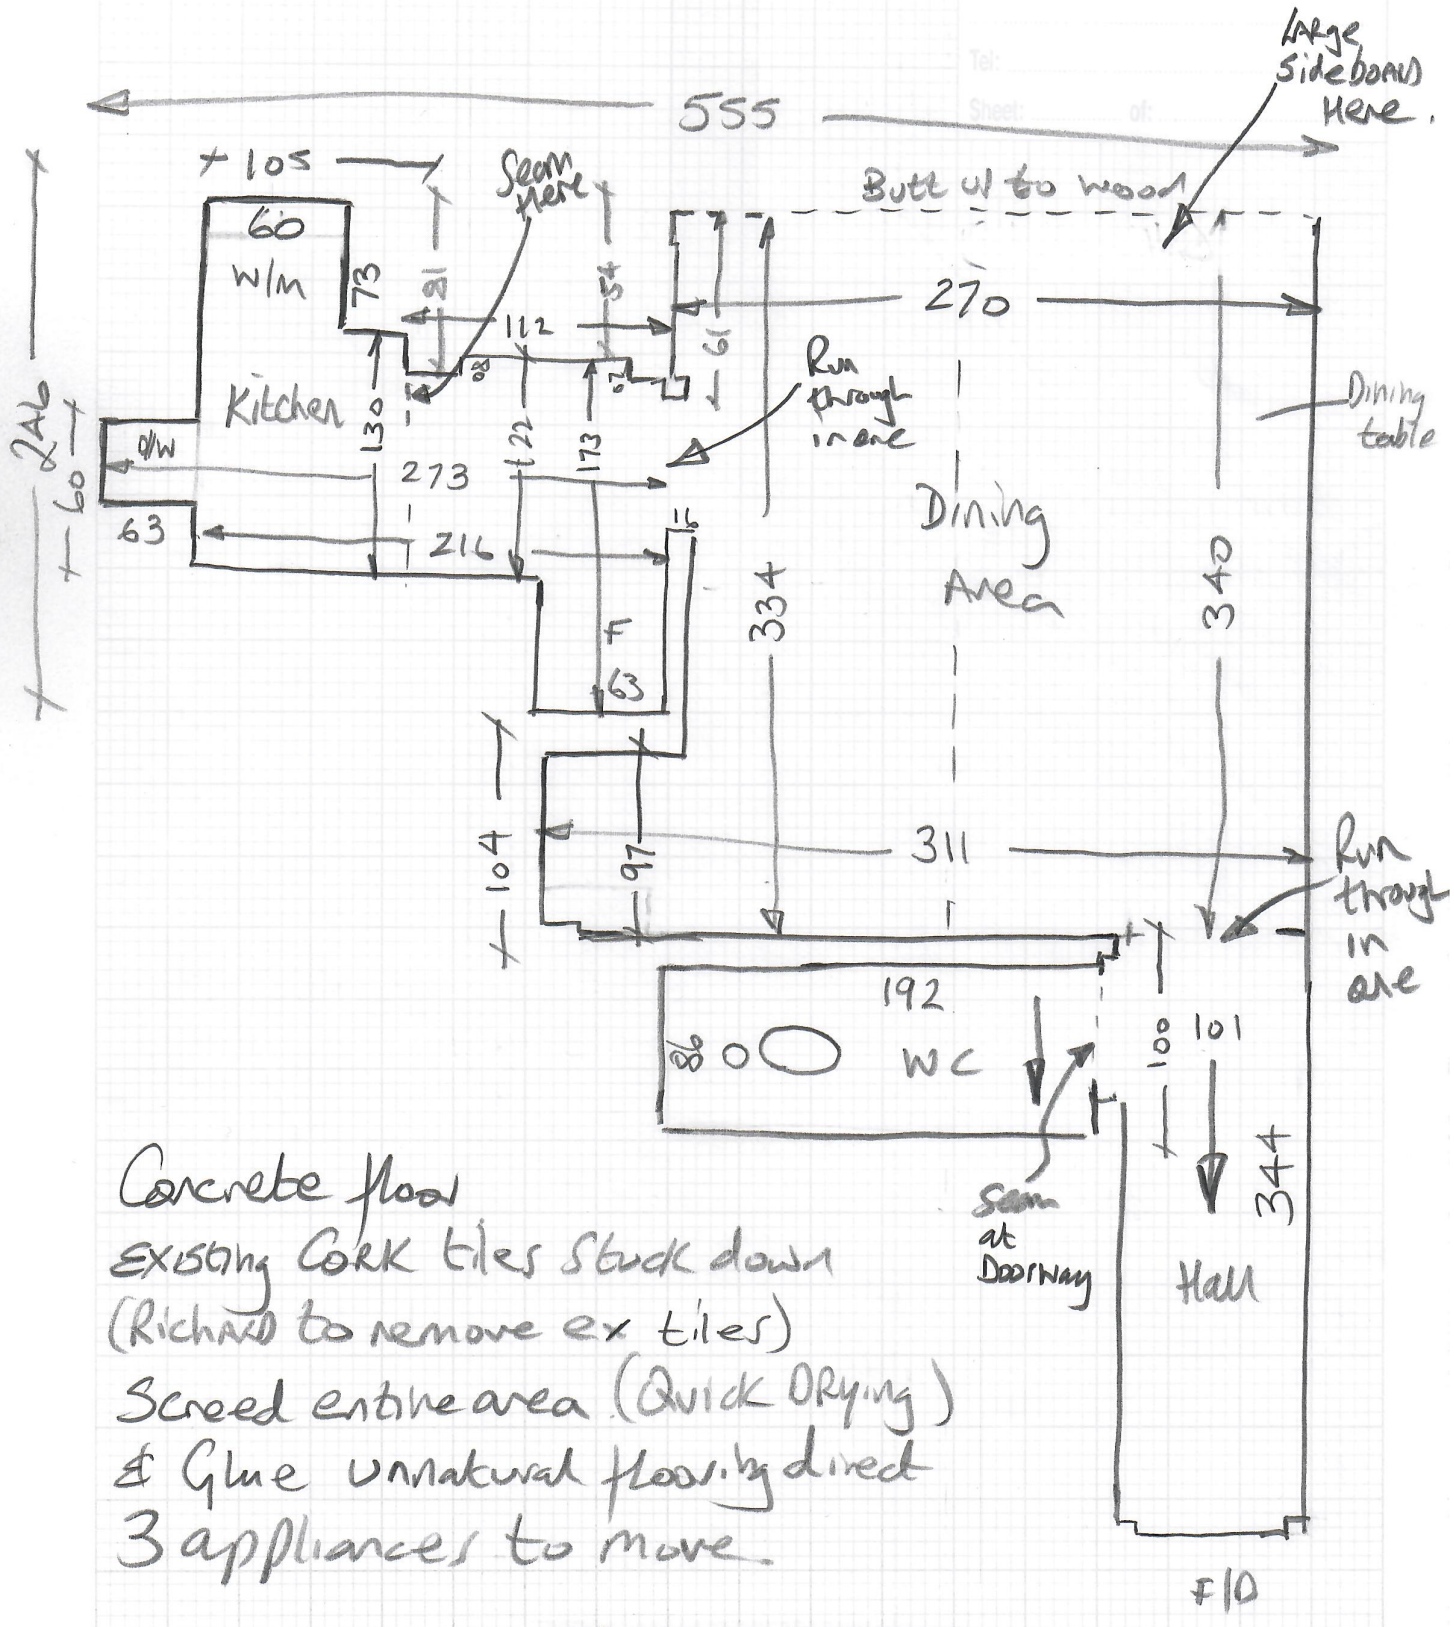 Tel:
Sheet: of:
LARge
SideboARD
Here.
555
105
Seam
Here
Butt up to wood
60
W/m
73
81
54
112
61
270
08
Run
through
in one
Kitchen
130
122
173
246
60
D/W
273
63
216
16
Dining
table
Dining
Area
334
340
F
63
104
97
311
Run
through
in
one
192
86
WC
100
101
344
Seam
at
Doorway
Hall
F/D
Concrete floor
Existing CORK tiles Stuck down
(RichARD to remove ex tiles)
Screed entire area (Quick DRying)
& Glue unnatural flooring direct
3 appliances to move